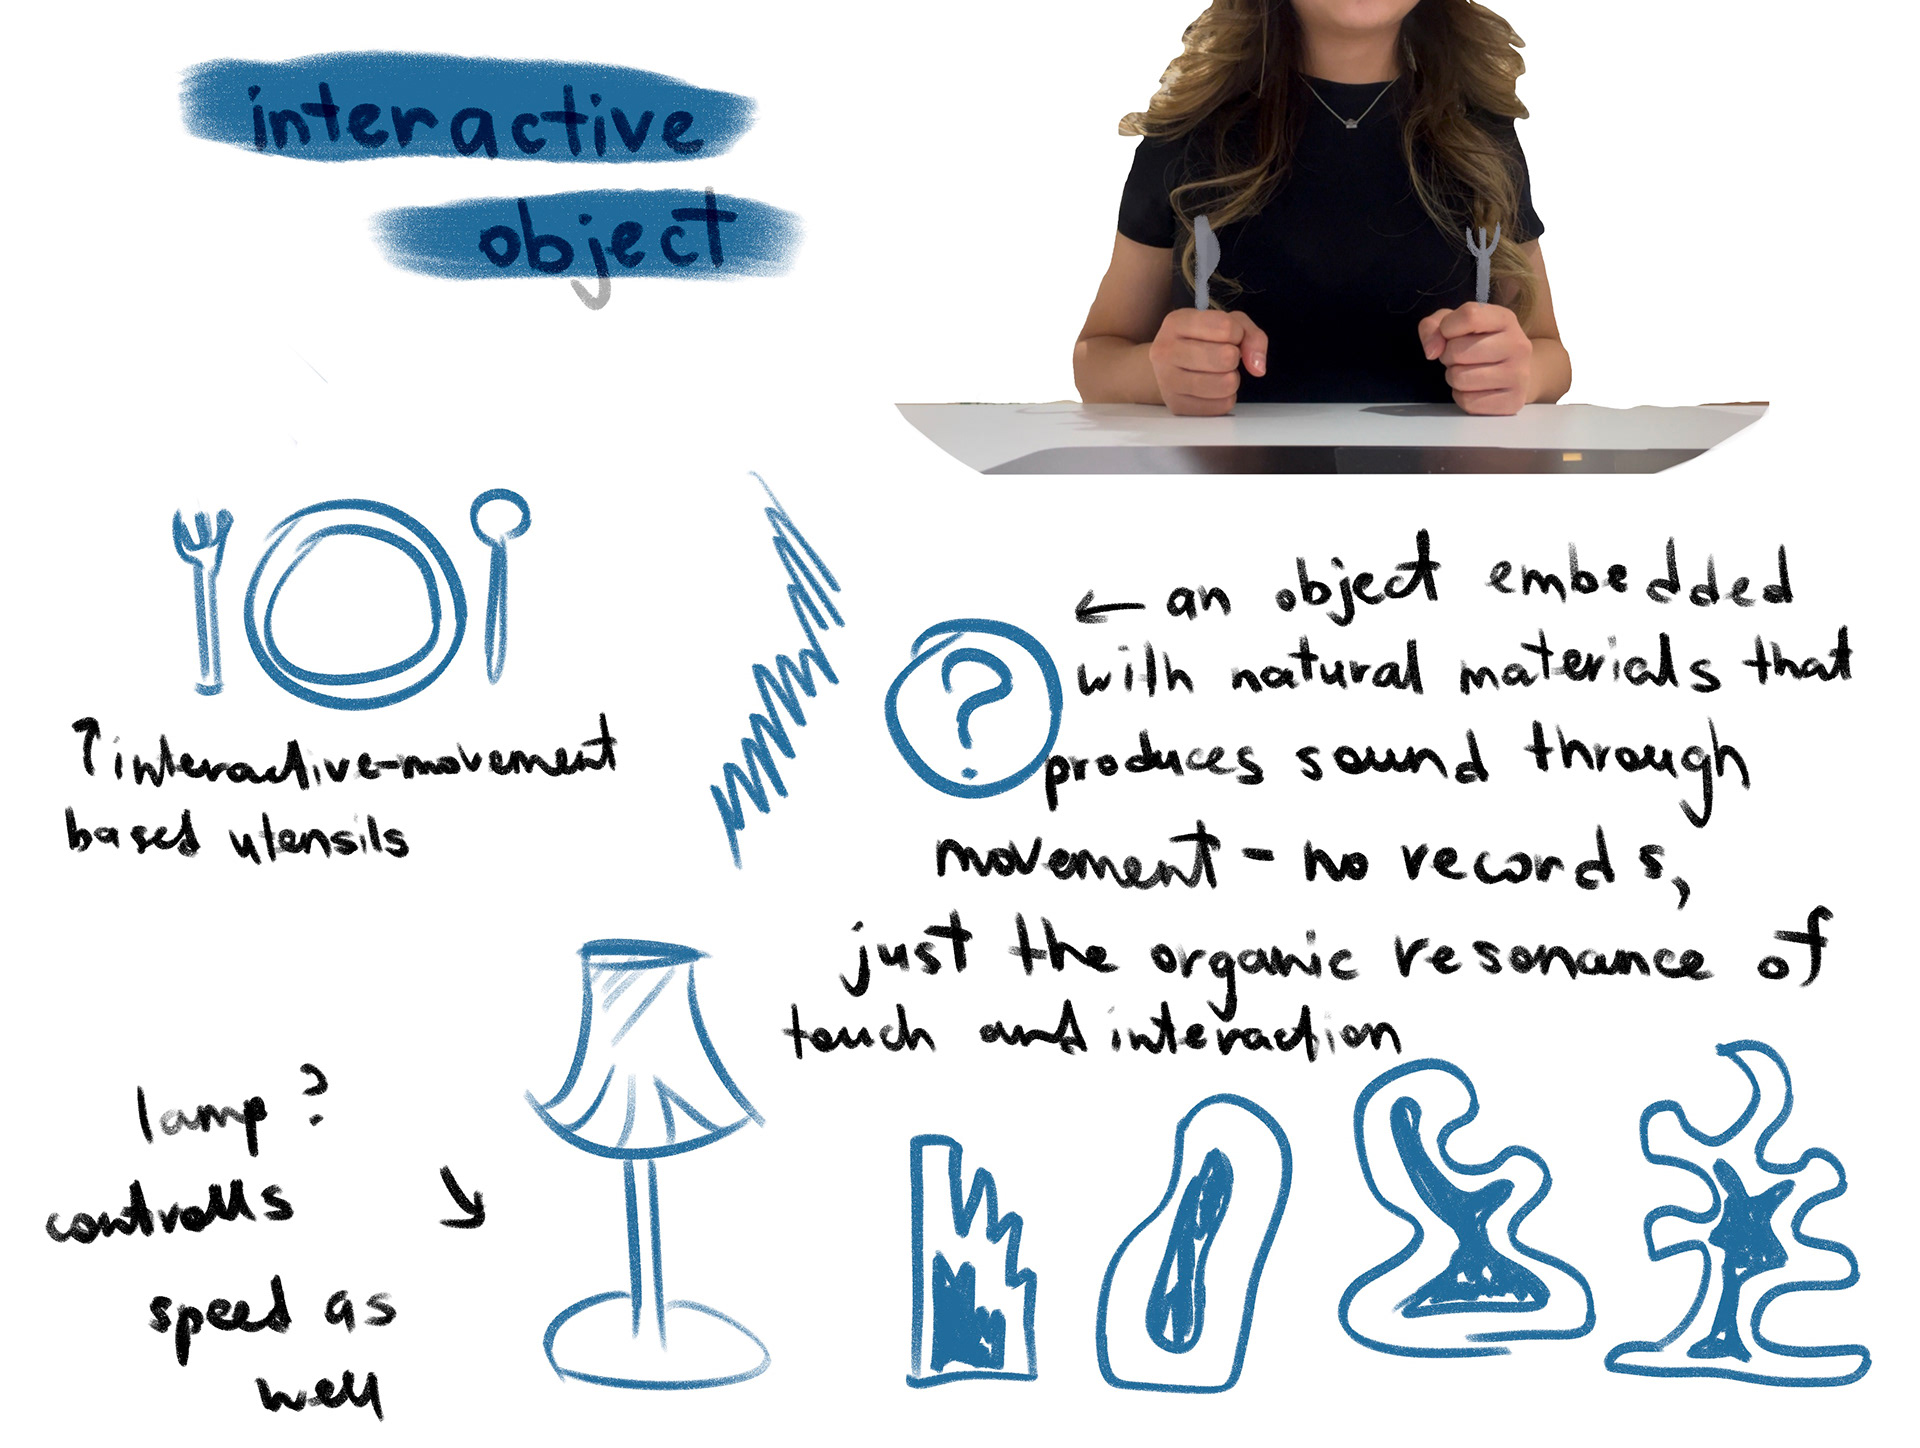 interactive
object
↑interactive-movement
based utensils
?
← an object embedded
with natural materials that
produces sound through
movement - no records,
just the organic resonance of
touch and interaction
lamp?
controlls
speed as
well